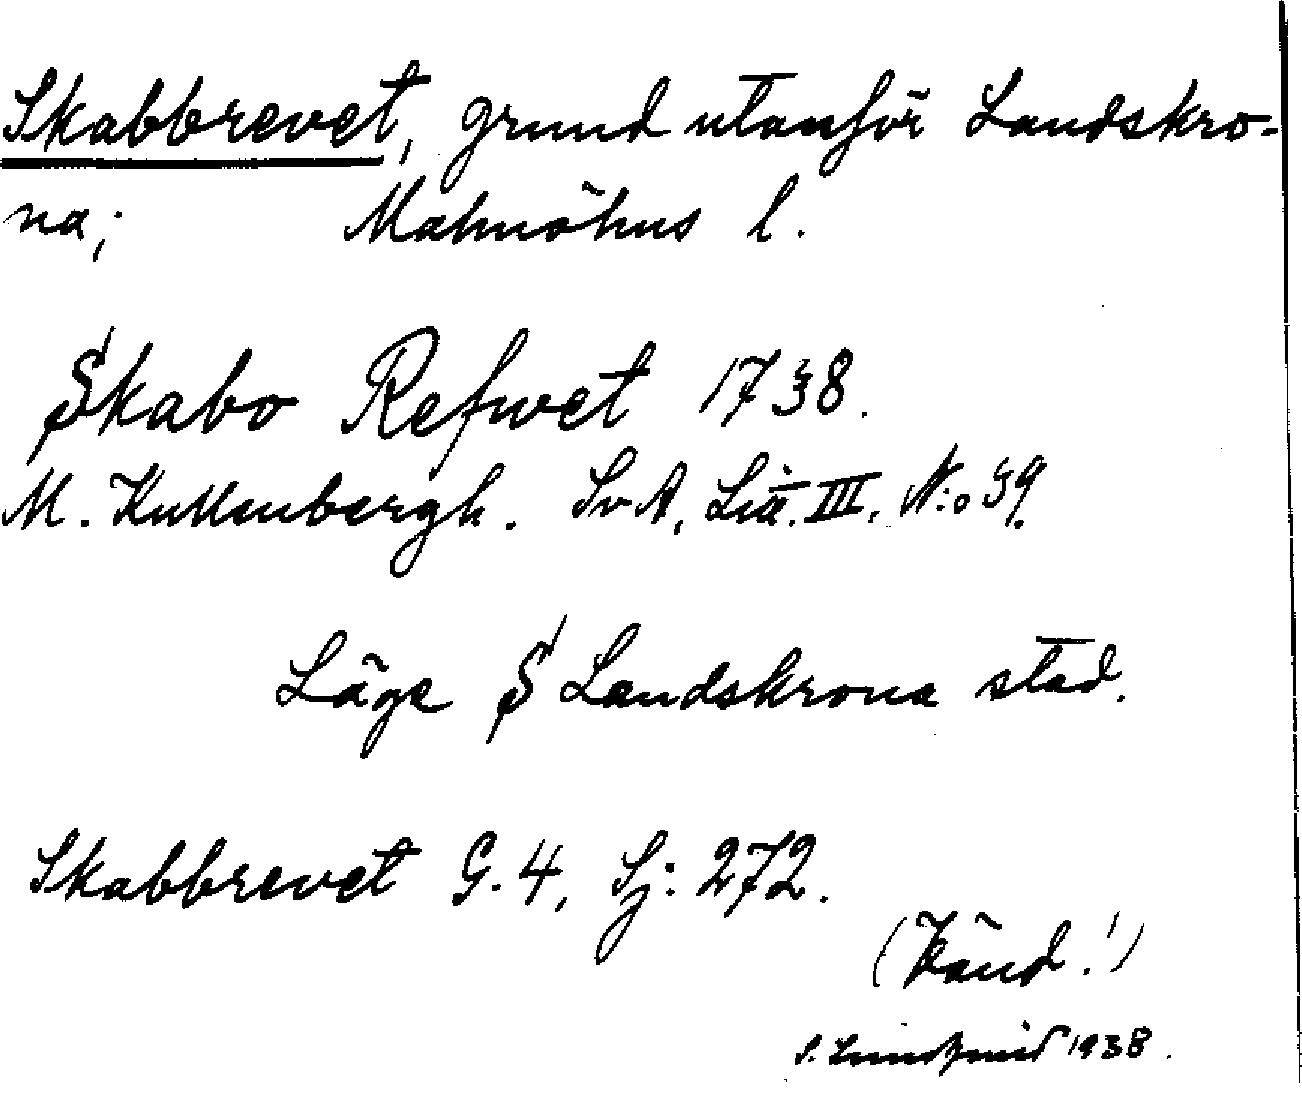 Skabbrevet, grund utanför Landskro-
na; Malmöhus l.
Skabo Refwet 1738.
M. Kullenbergh. SvA, Lit. III, N:o 39.
Läge S Landskrona stad.
Skabbrevet G. 4, Sj: 272.
(Känd!)
S. 1938.